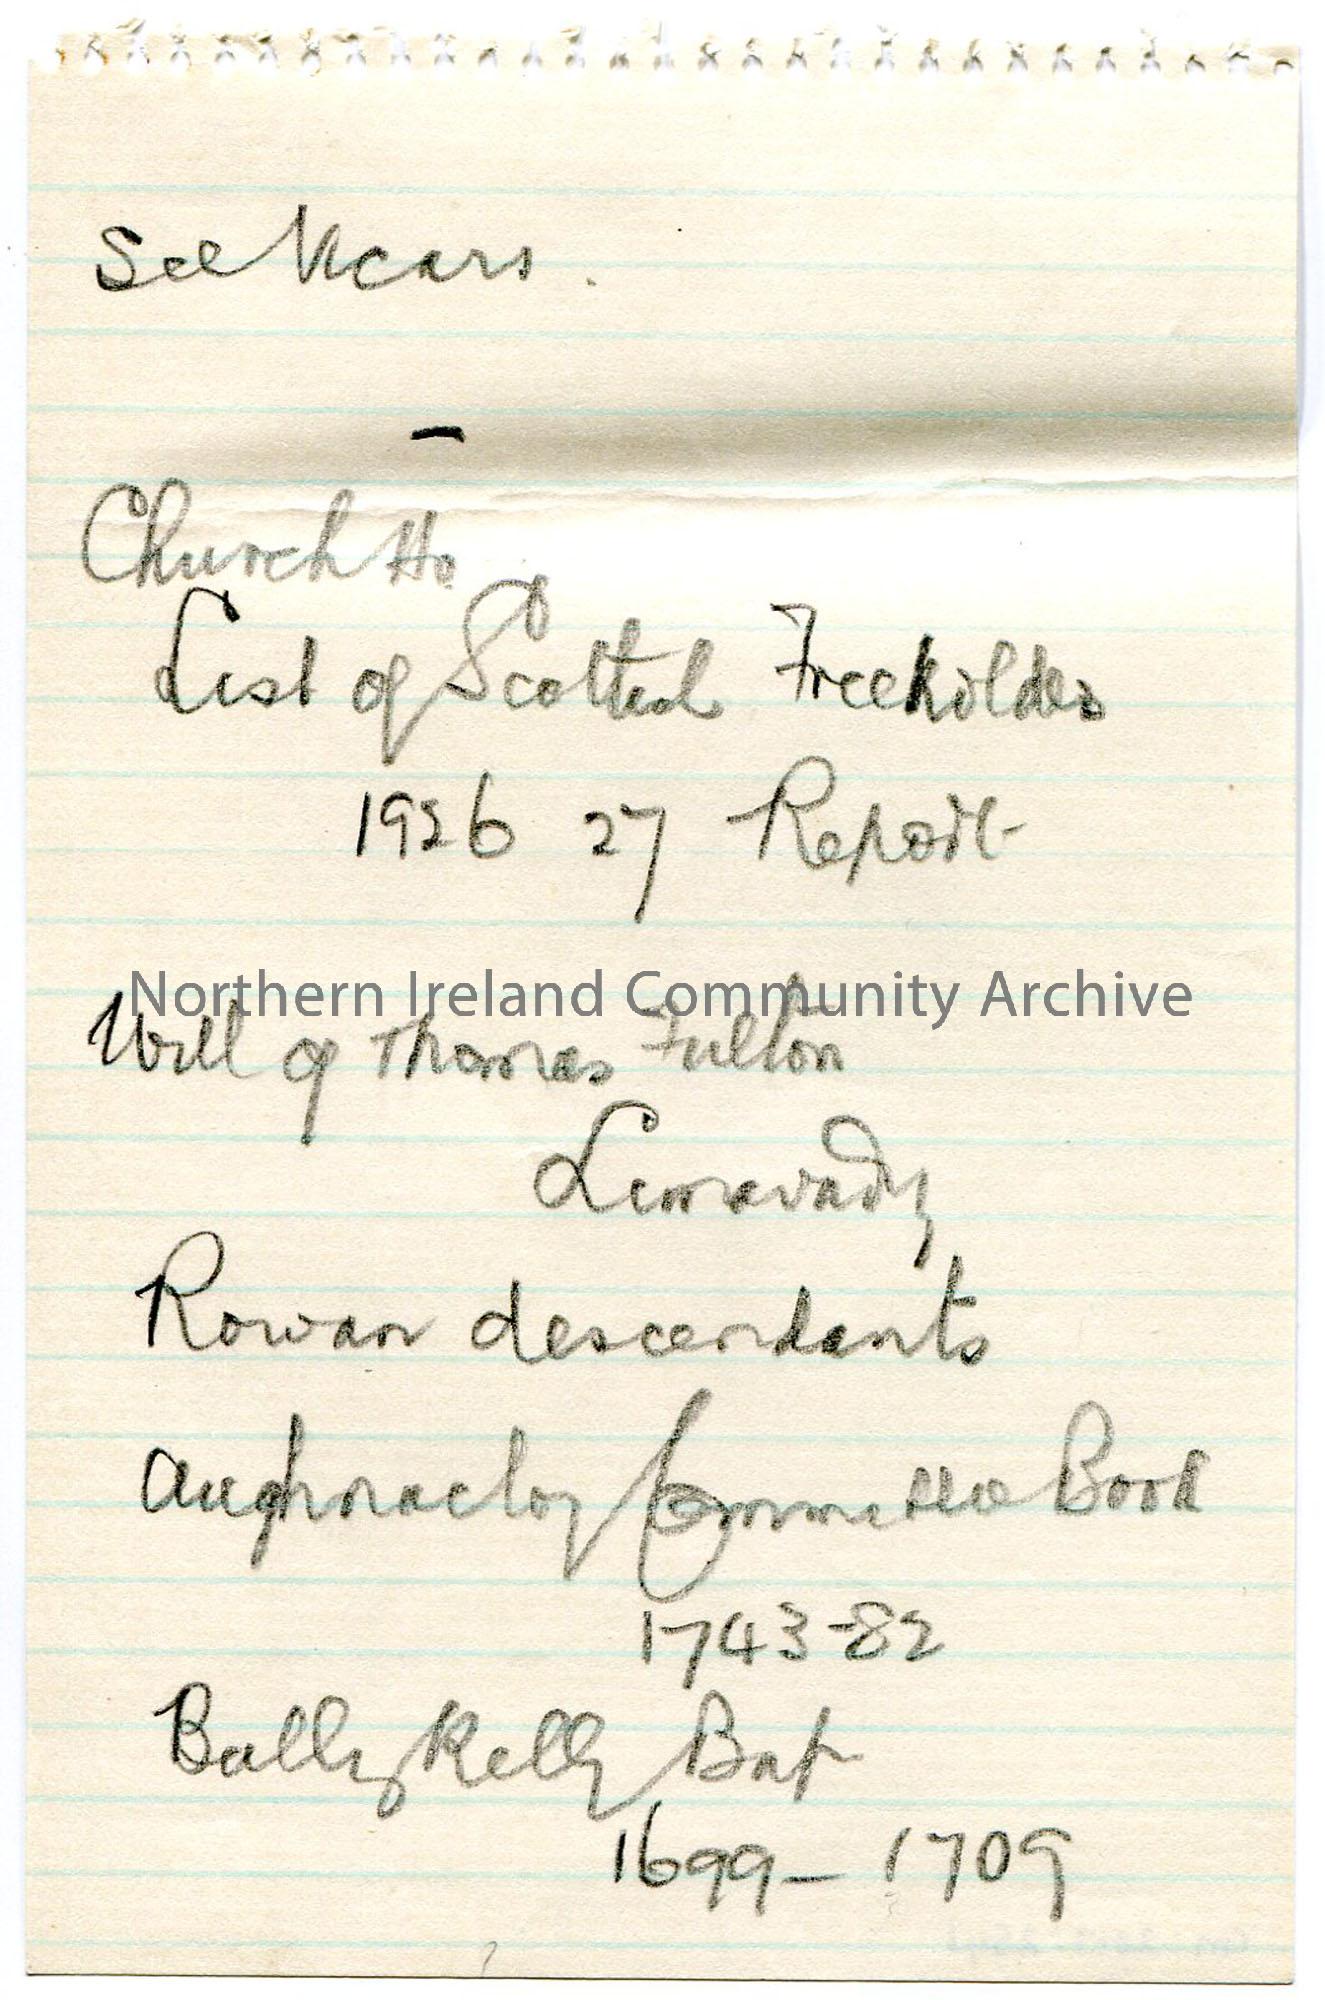 See Vicars.
-
Church Ho.
List of Scottish Freeholders
1926 27 Report
Northern Ireland Community Archive
Will of Thomas Fulton
Limavady
Rowan descendants
Aughnacloy Committee Book
1743-82
Ballykelly Bap
1699 - 1709